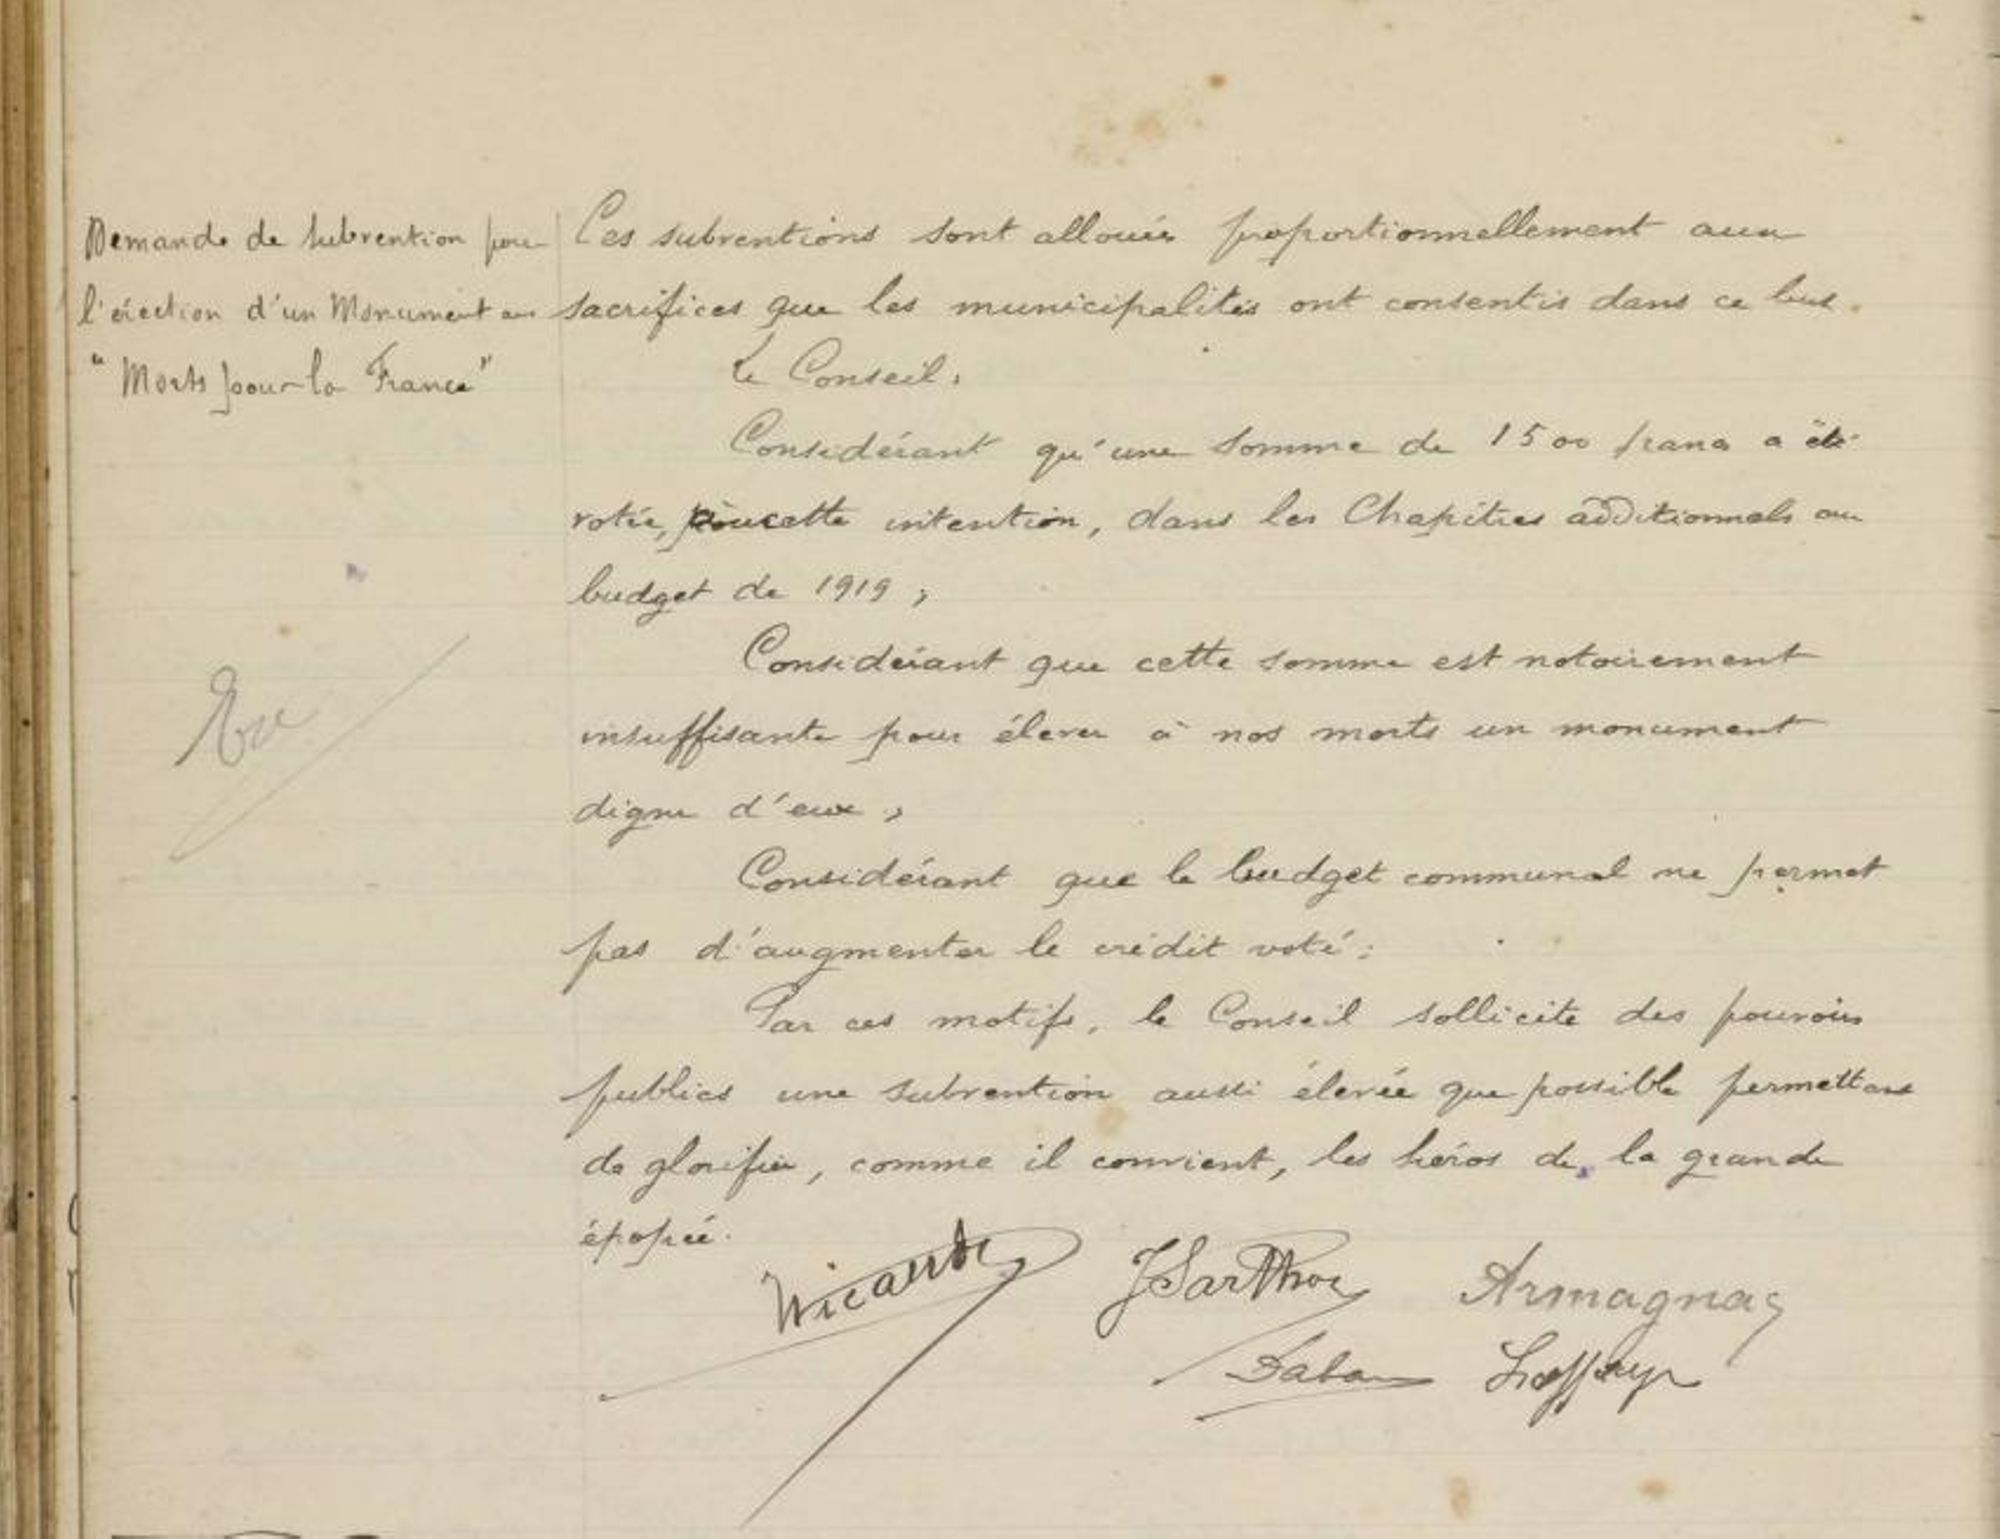 Demande de subvention pour
l'érection d'un Monument aux
"Morts pour la France"
Ces subventions sont allouées proportionnellement aux
sacrifices que les municipalités ont consentis dans ce but.
Le Conseil,
Considérant qu'une somme de 1500 francs a été
votée, pour cette intention, dans les Chapitres additionnels au
budget de 1919 ;
Considérant que cette somme est notoirement
insuffisante pour élever à nos morts un monument
digne d'eux ;
Considérant que le budget communal ne permet
pas d'augmenter le crédit voté ;
Par ces motifs, le Conseil sollicite des pouvoirs
publics une subvention aussi élevée que possible permettant
de glorifier, comme il convient, les héros de la grande
épopée.
Armagnac